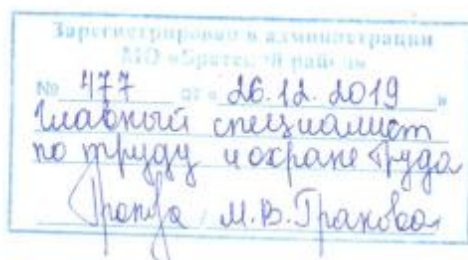 Зарегистрирован в администрации
МО «Братский район»
№ 477 от « 26.12.2019 »
Главный специалист
по труду и охране труда
М.В. Гранова